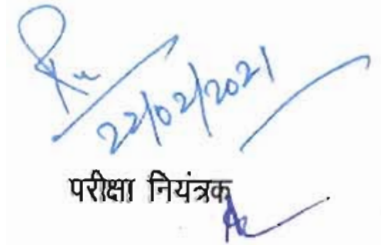 22/02/2021
परीक्षा नियंत्रक